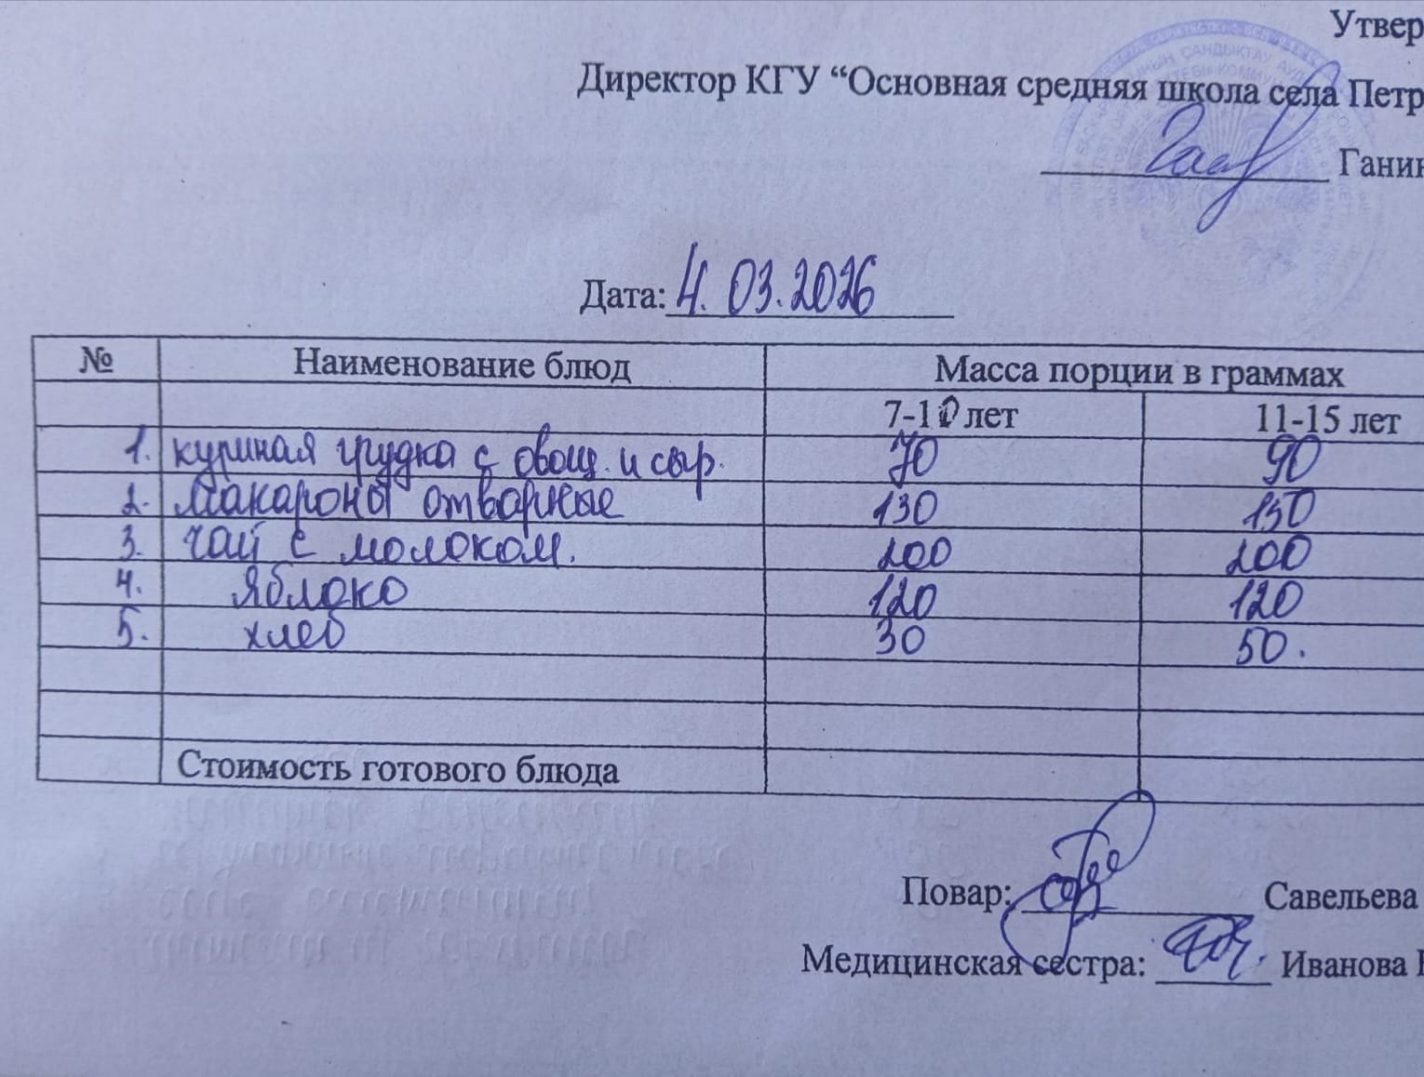 Утвер
Директор КГУ “Основная средняя школа села Петр
Ганин
Дата: 4. 03. 2026
№ Наименование блюд Масса порции в граммах
7-10 лет 11-15 лет
1. куриная грудка с овощ. и сыр. 70 90
2. Макароны отварные 130 150
3. чай с молоком. 200 200
4. яблоко 120 120
5. хлеб 30 50.
Стоимость готового блюда
Повар: Савельева
Медицинская сестра: Иванова